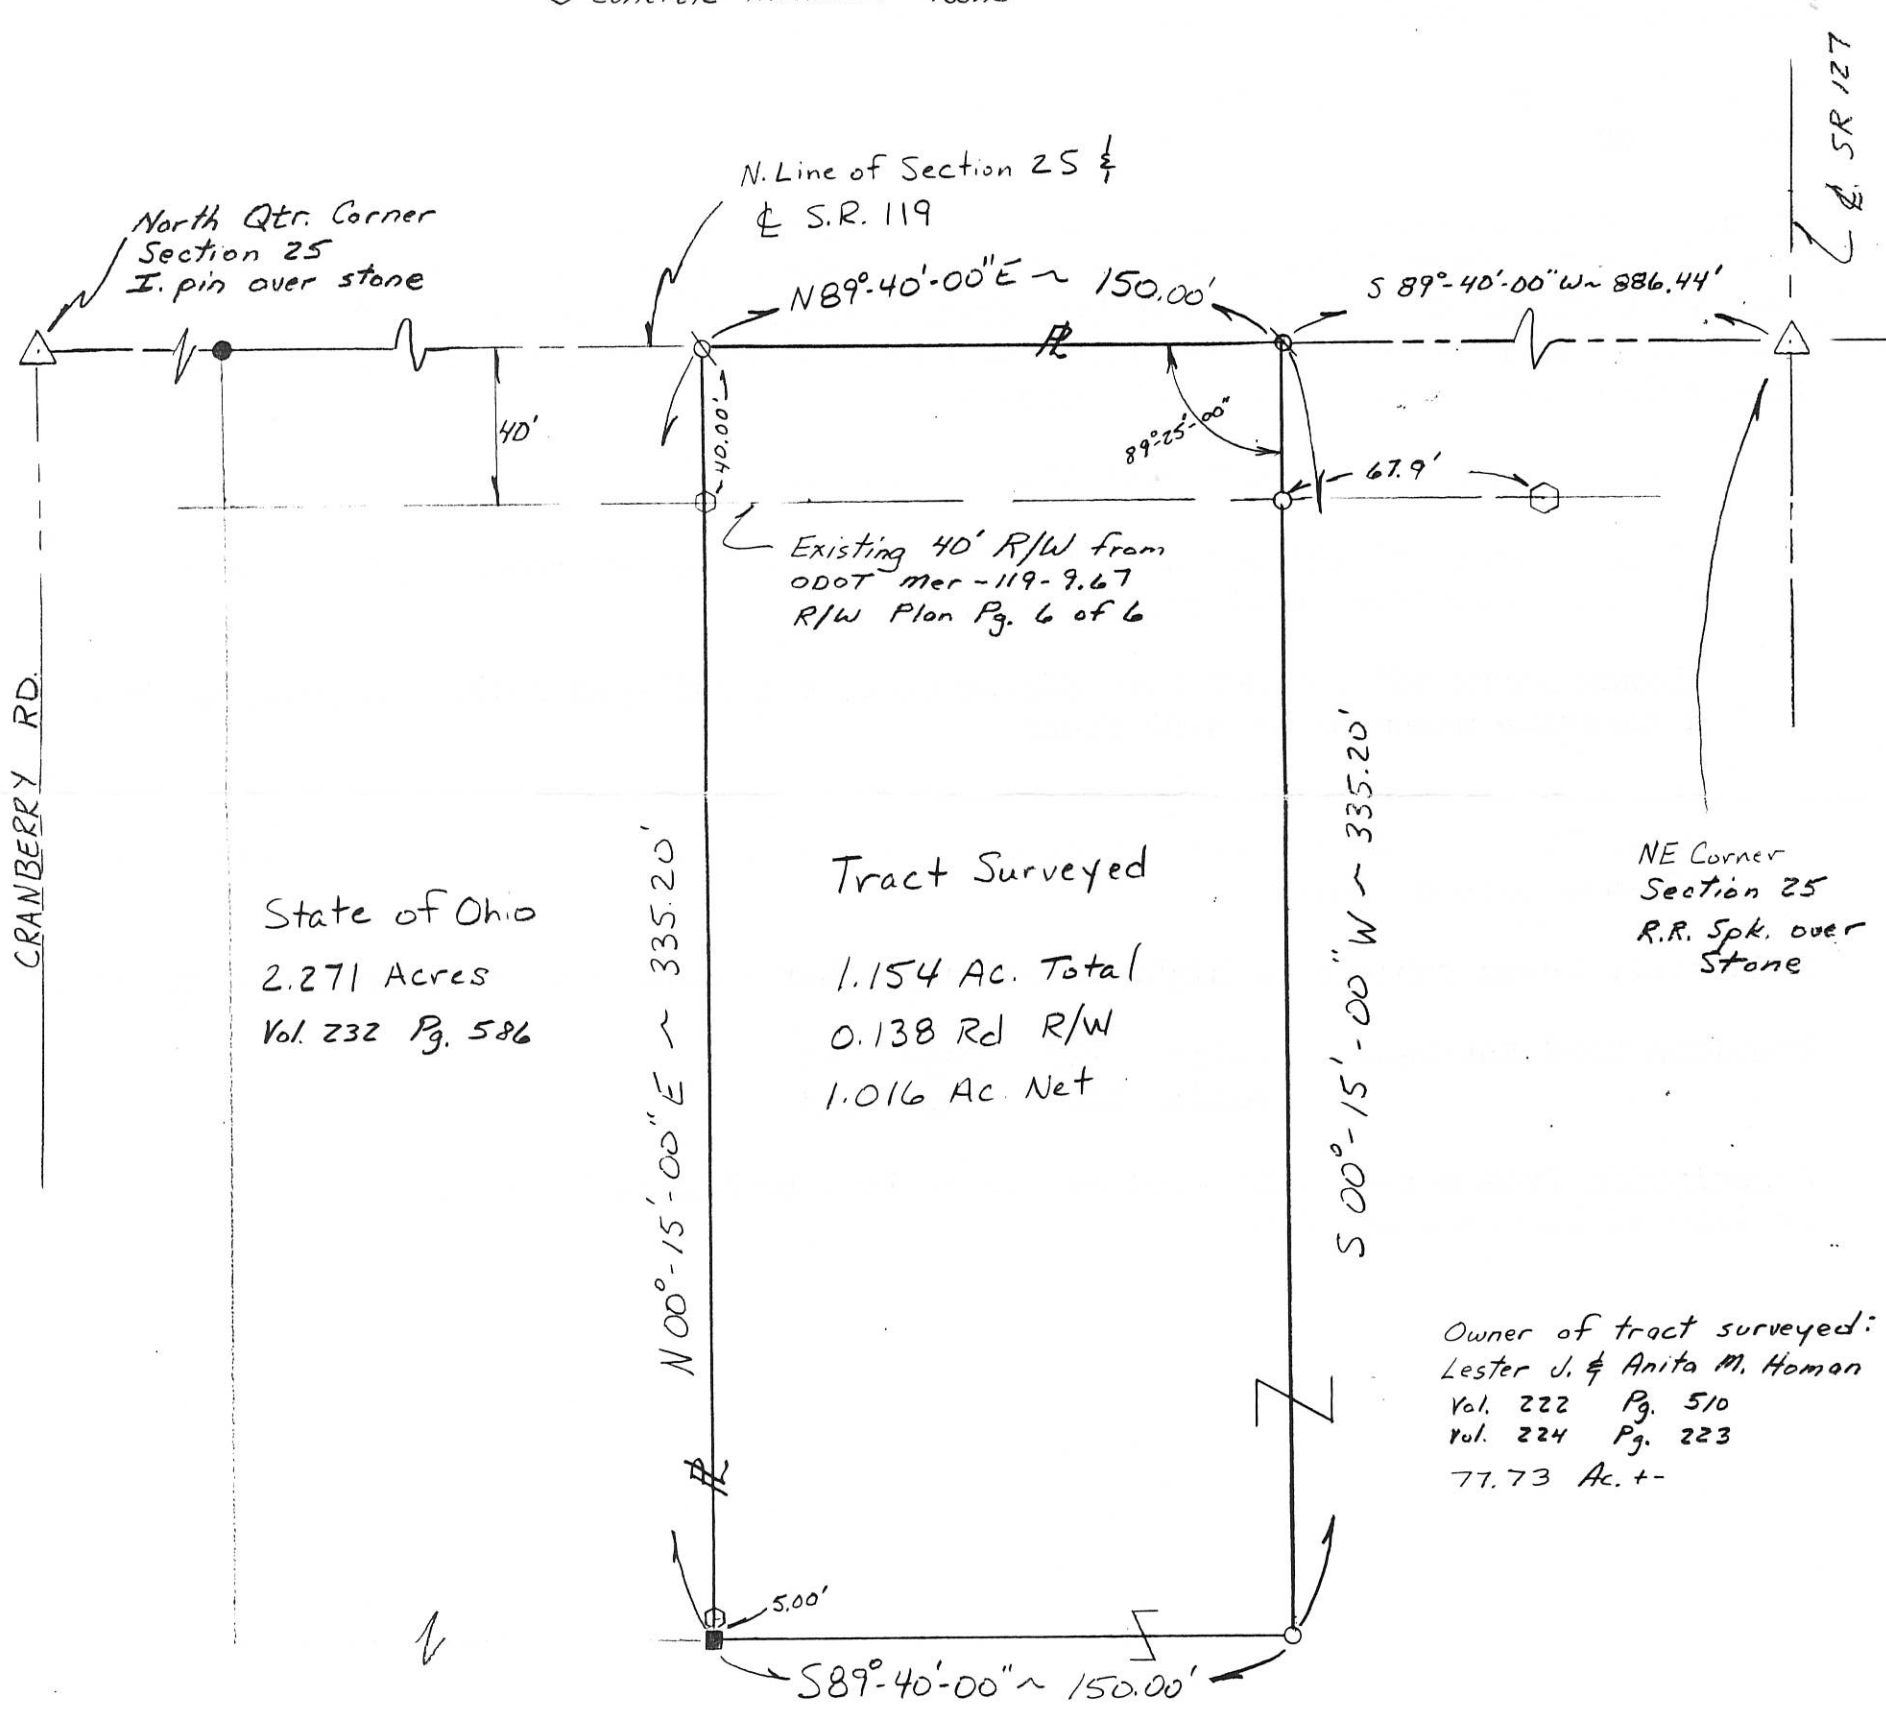 SR 127
N. Line of Section 25 &
℄ S.R. 119
North Qtr. Corner
Section 25
I. pin over stone
N89°-40'-00"E ~ 150.00'
S 89°-40'-00"W ~ 886.44'
40'
~40.00'~
89°-25'-00"
67.9'
Existing 40' R/W from
ODOT mer-119-9.67
R/W Plan Pg. 6 of 6
CRANBERRY RD.
N00°-15'-00"E ~ 335.20'
S 00°-15'-00"W ~ 335.20'
Tract Surveyed
1.154 Ac. Total
0.138 Rd R/W
1.016 Ac. Net
State of Ohio
2.271 Acres
Vol. 232 Pg. 586
NE Corner
Section 25
R.R. Spk. over
Stone
Owner of tract surveyed:
Lester J. & Anita M. Homan
Vol. 222 Pg. 510
Vol. 224 Pg. 223
77.73 Ac. +-
5.00'
S89°-40'-00" ~ 150.00'